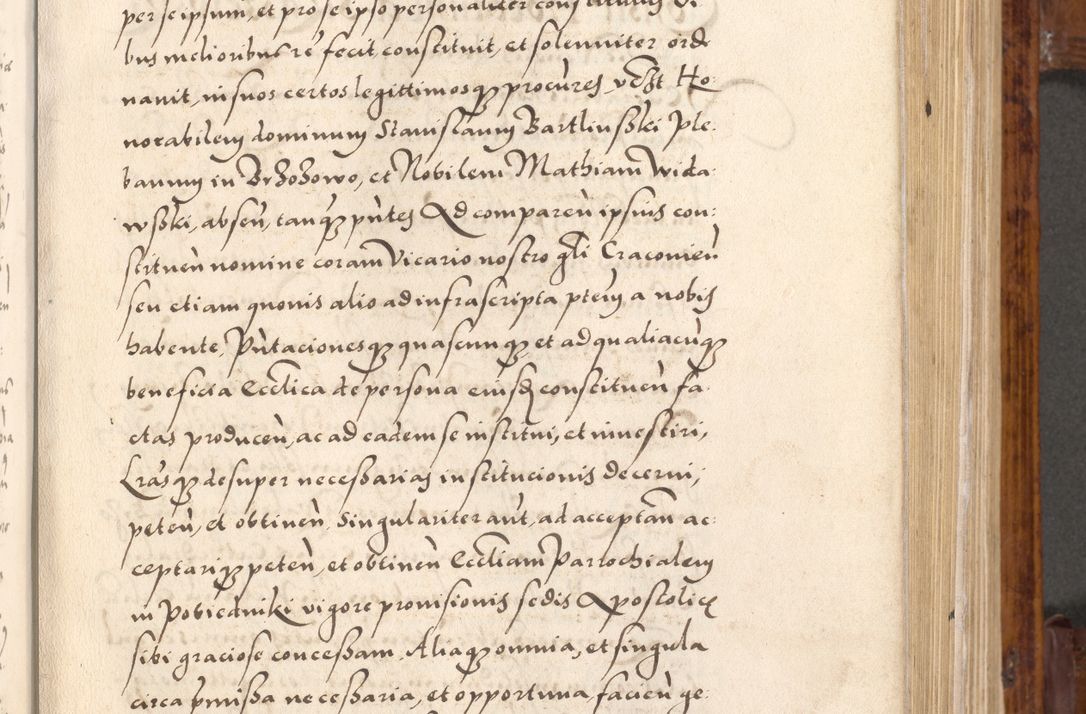 per se ipsum, et pro se ipso personaliter constitutus
bus melioribus re fecit, constituit, et solenniter ordi
nauit, in suos certos legittimosqꝫ procures, vdꝫt Ho:
norabilem dominum Stanislaum Bartlinßki Ple:
banum in Brzozowo, et Nobilem Mathiam Wida:
wßki, absen̄, tanqꝫ pn̄tes Ad comparen̄ ipsius con:
stituen̄ nomine coram Vicario nostro gn̄li Cracouien̄
seu etiam quouis alio ad infrascripta ptem a nobis
habente, Pn̄tacionesqꝫ quascunqꝫ, et ad qualiacūqꝫ
beneficia Eccl̄ica de persona eiusd constituen̄ fa
ctas producen̄, ac ad eadem se institui, et inuestiri,
Lr̄asqꝫ desuper neceßarias institucionis decerni,
peten̄, et obtinen̄, Singulariter aūt, ad acceptan̄ ac:
ceptariqꝫ peten̄, et obtinen̄ Eccl̄iam Parrochialem
in Pobiedniki vigore prouisionis sedis Apostolicę
sibi graciose conceßam, Aliaqꝫ omnia, et singula
circa p̄mißa neceßaria, et opportuna, facien̄ ge: